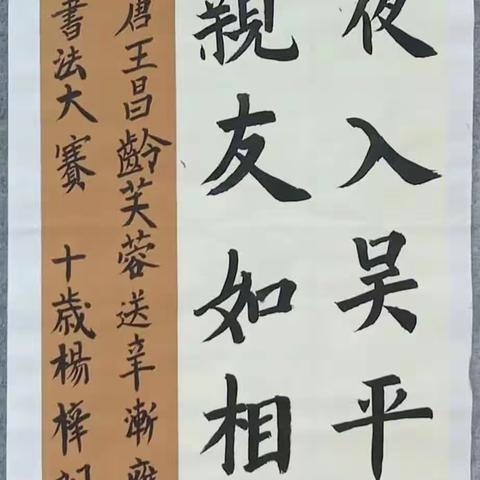 夜入吴平
親友如相
唐王昌齡芙蓉送辛漸
書法大賽 十歳楊